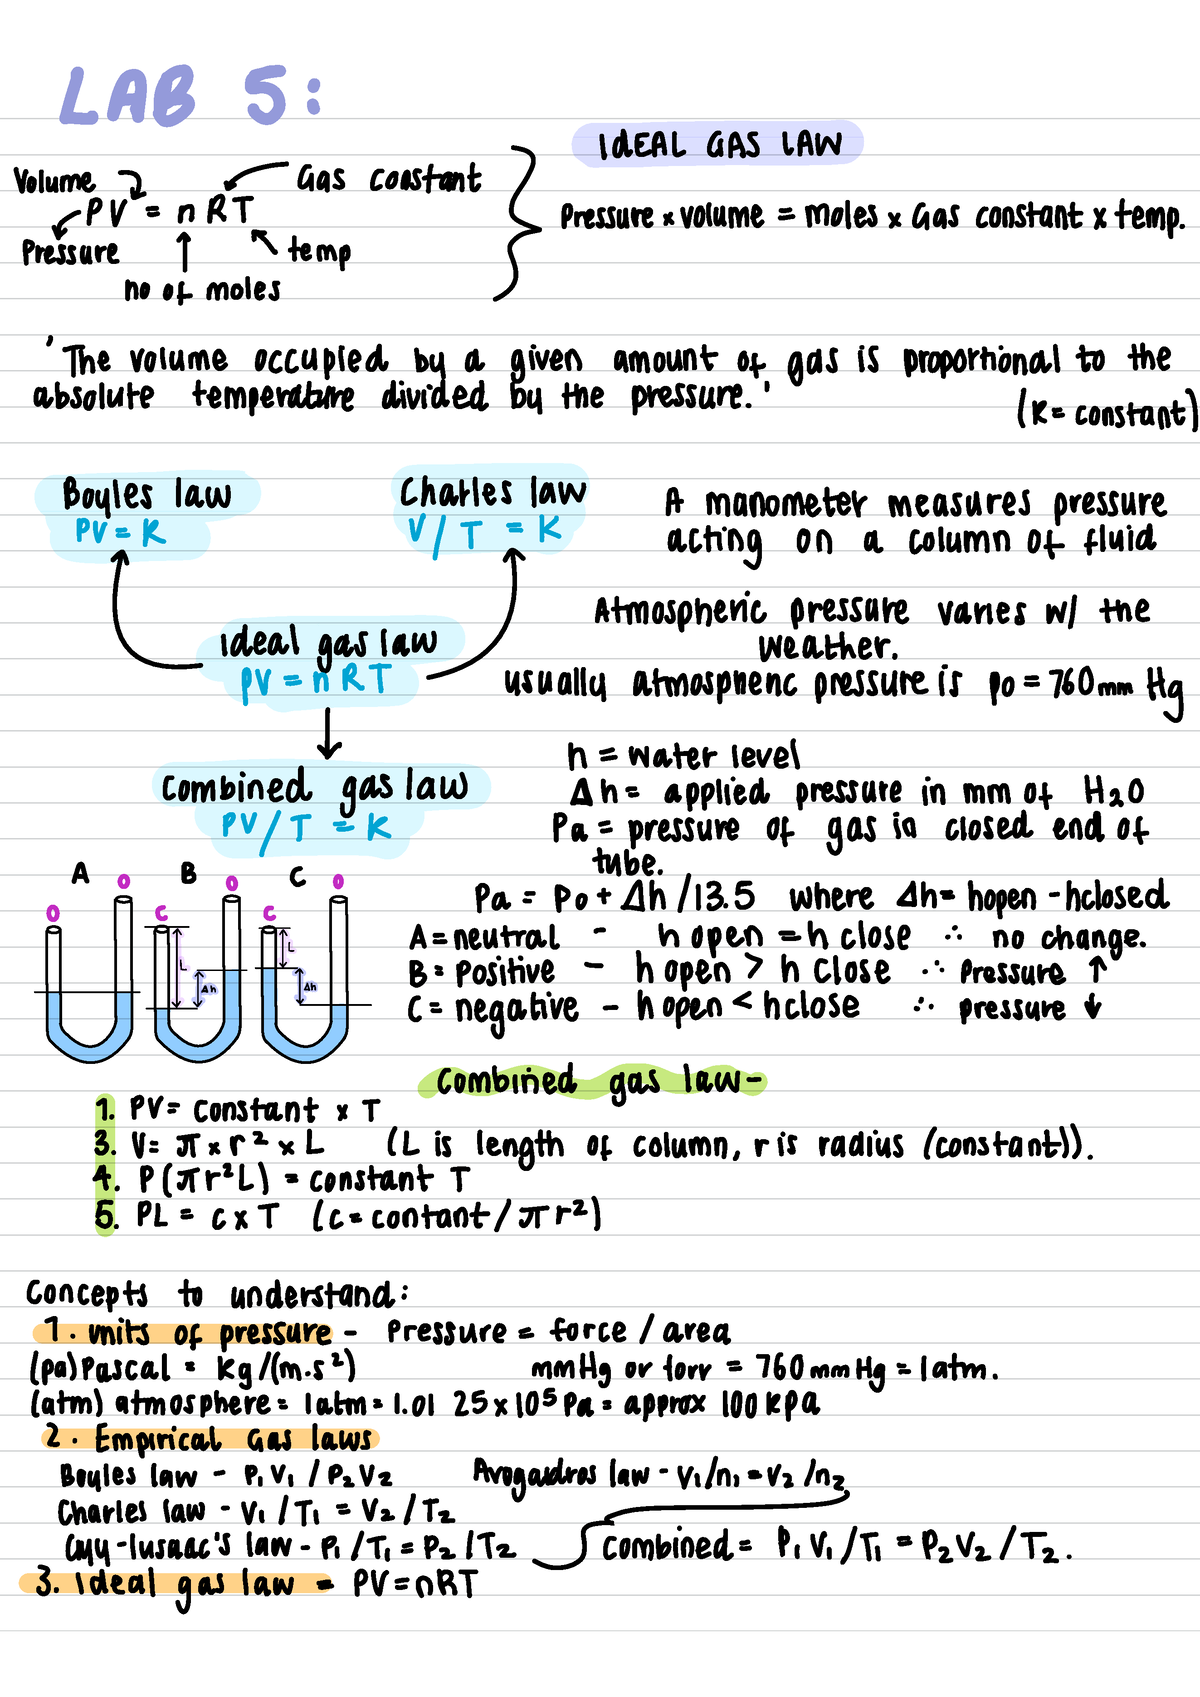 LAB 5:
IDEAL GAS LAW
Volume
Gas constant
PV = nRT
Pressure
temp
no of moles
Pressure x volume = moles x Gas constant x temp.
'The volume occupied by a given amount of gas is proportional to the
absolute temperature divided by the pressure.'
(K= constant)
Boyles law
PV = K
Charles law
V/T = K
A manometer measures pressure
acting on a column of fluid
Atmospheric pressure varies w/ the
weather.
usually atmospheric pressure is po = 760mm Hg
ideal gas law
pV = nRT
Combined gas law
PV/T = K
h = water level
Δh = applied pressure in mm of H2O
Pa = pressure of gas in closed end of
tube.
Pa = Po + Δh/13.5 where Δh= hopen - hclosed
A = neutral - h open = h close ∴ no change.
B = Positive - h open > h close ∴ Pressure ↑
C = negative - h open < hclose ∴ pressure ↓
A B C
O O C O C O
L Δh L Δh
Combined gas law-
1. PV= constant x T
3. V= π x r² x L (L is length of column, r is radius (constant)).
4. P(πr²L) = constant T
5. PL = c x T (c= contant/πr²)
Concepts to understand:
1. units of pressure - Pressure = force / area
(pa) Pascal = Kg/(m.s²) mmHg or torr = 760mmHg = 1atm.
(atm) atmosphere = 1atm = 1.01 25 x 10⁵ Pa = approx 100 kpa
2. Empirical Gas laws
Boyles law - P₁V₁ / P₂V₂ Avogadros law - V₁/n₁ = V₂/n₂
Charles law - V₁/T₁ = V₂/T₂
law - P₁/T₁ = P₂/T₂ Combined = P₁V₁/T₁ = P₂V₂/T₂.
3. Ideal gas law = PV=nRT